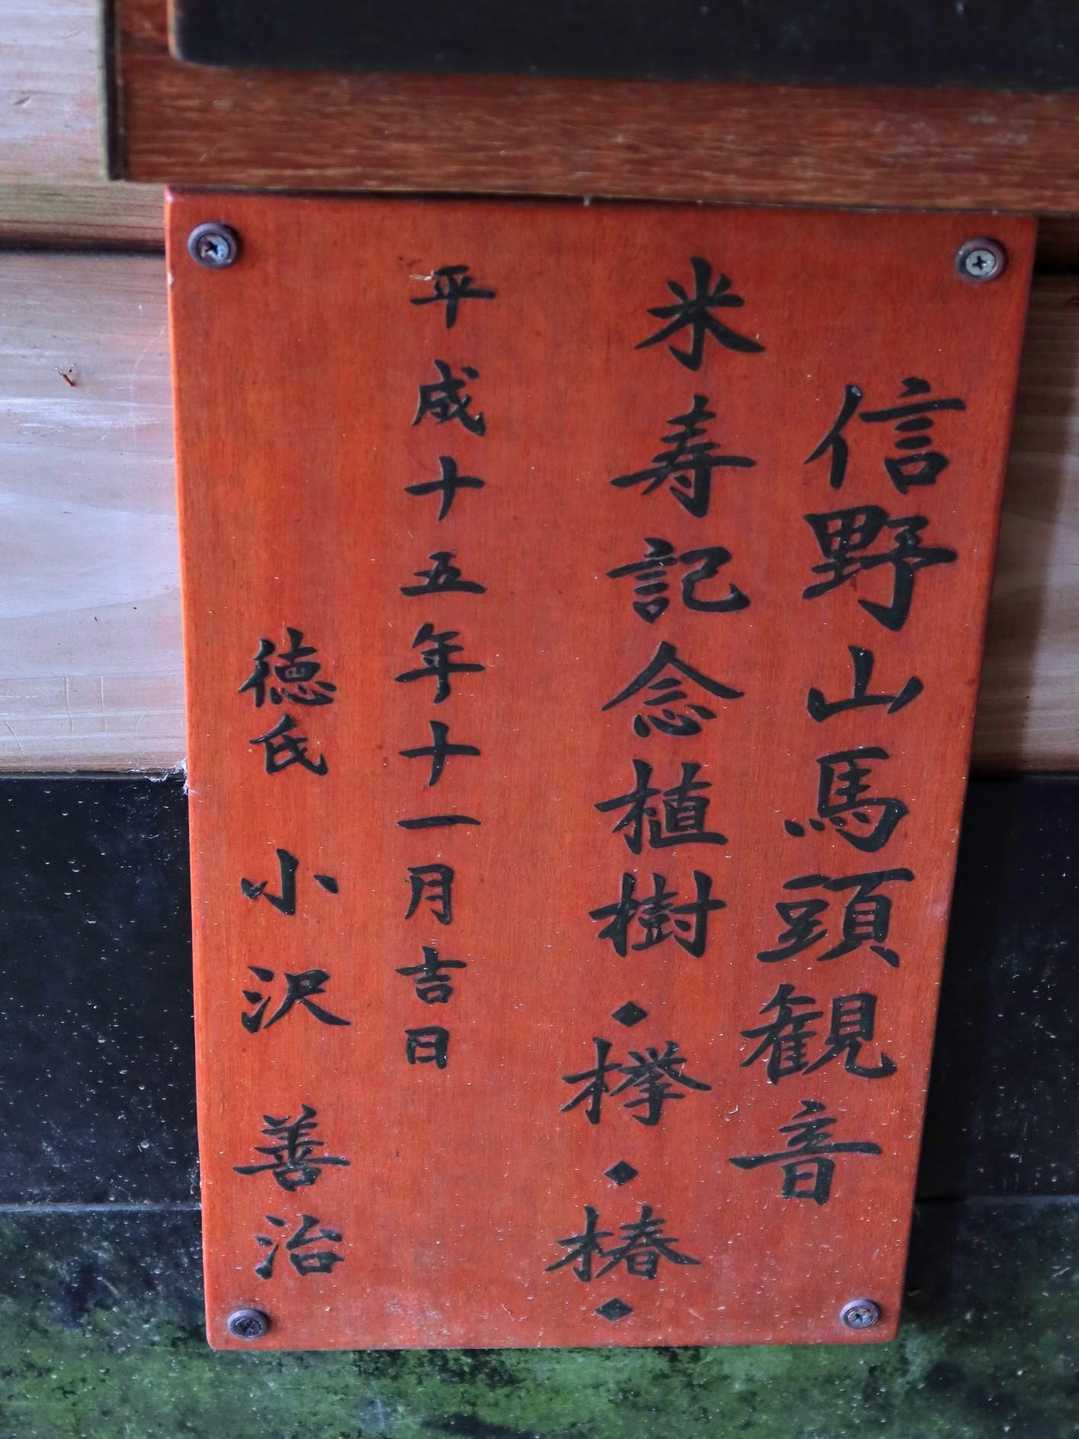 信野山馬頭観音
米寿記念植樹・欅・椿・
平成十五年十一月吉日
徳氏 小沢 善治